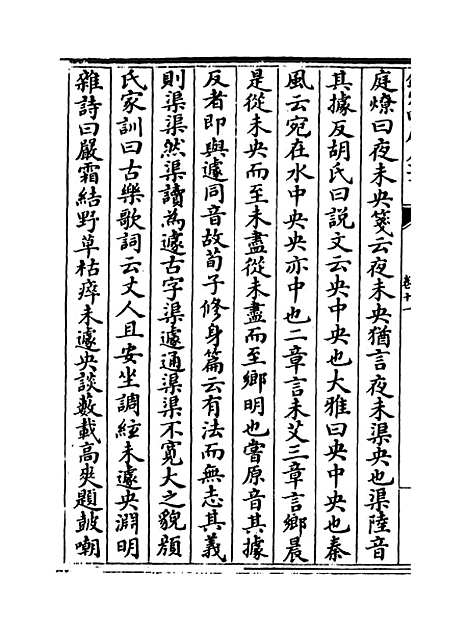 卷十一
庭燎曰夜未央箋云夜未央猶言夜未渠央也渠陸音
其據反胡氏曰說文云央中央也大雅曰央中央也秦
風云宛在水中央央亦中也二章言未艾三章言鄉晨
是從未央而至未盡從未盡而至鄉明也嘗原音其據
反者即與遽同音故荀子修身篇云有法而無志其義
則渠渠然渠讀為遽古字渠遽通渠渠不寛大之貌顔
氏家訓曰古樂歌詞云丈人且安坐調絃未遽央淵明
雜詩曰嚴霜結野草枯瘁未遽央談藪載高爽題皷嘲